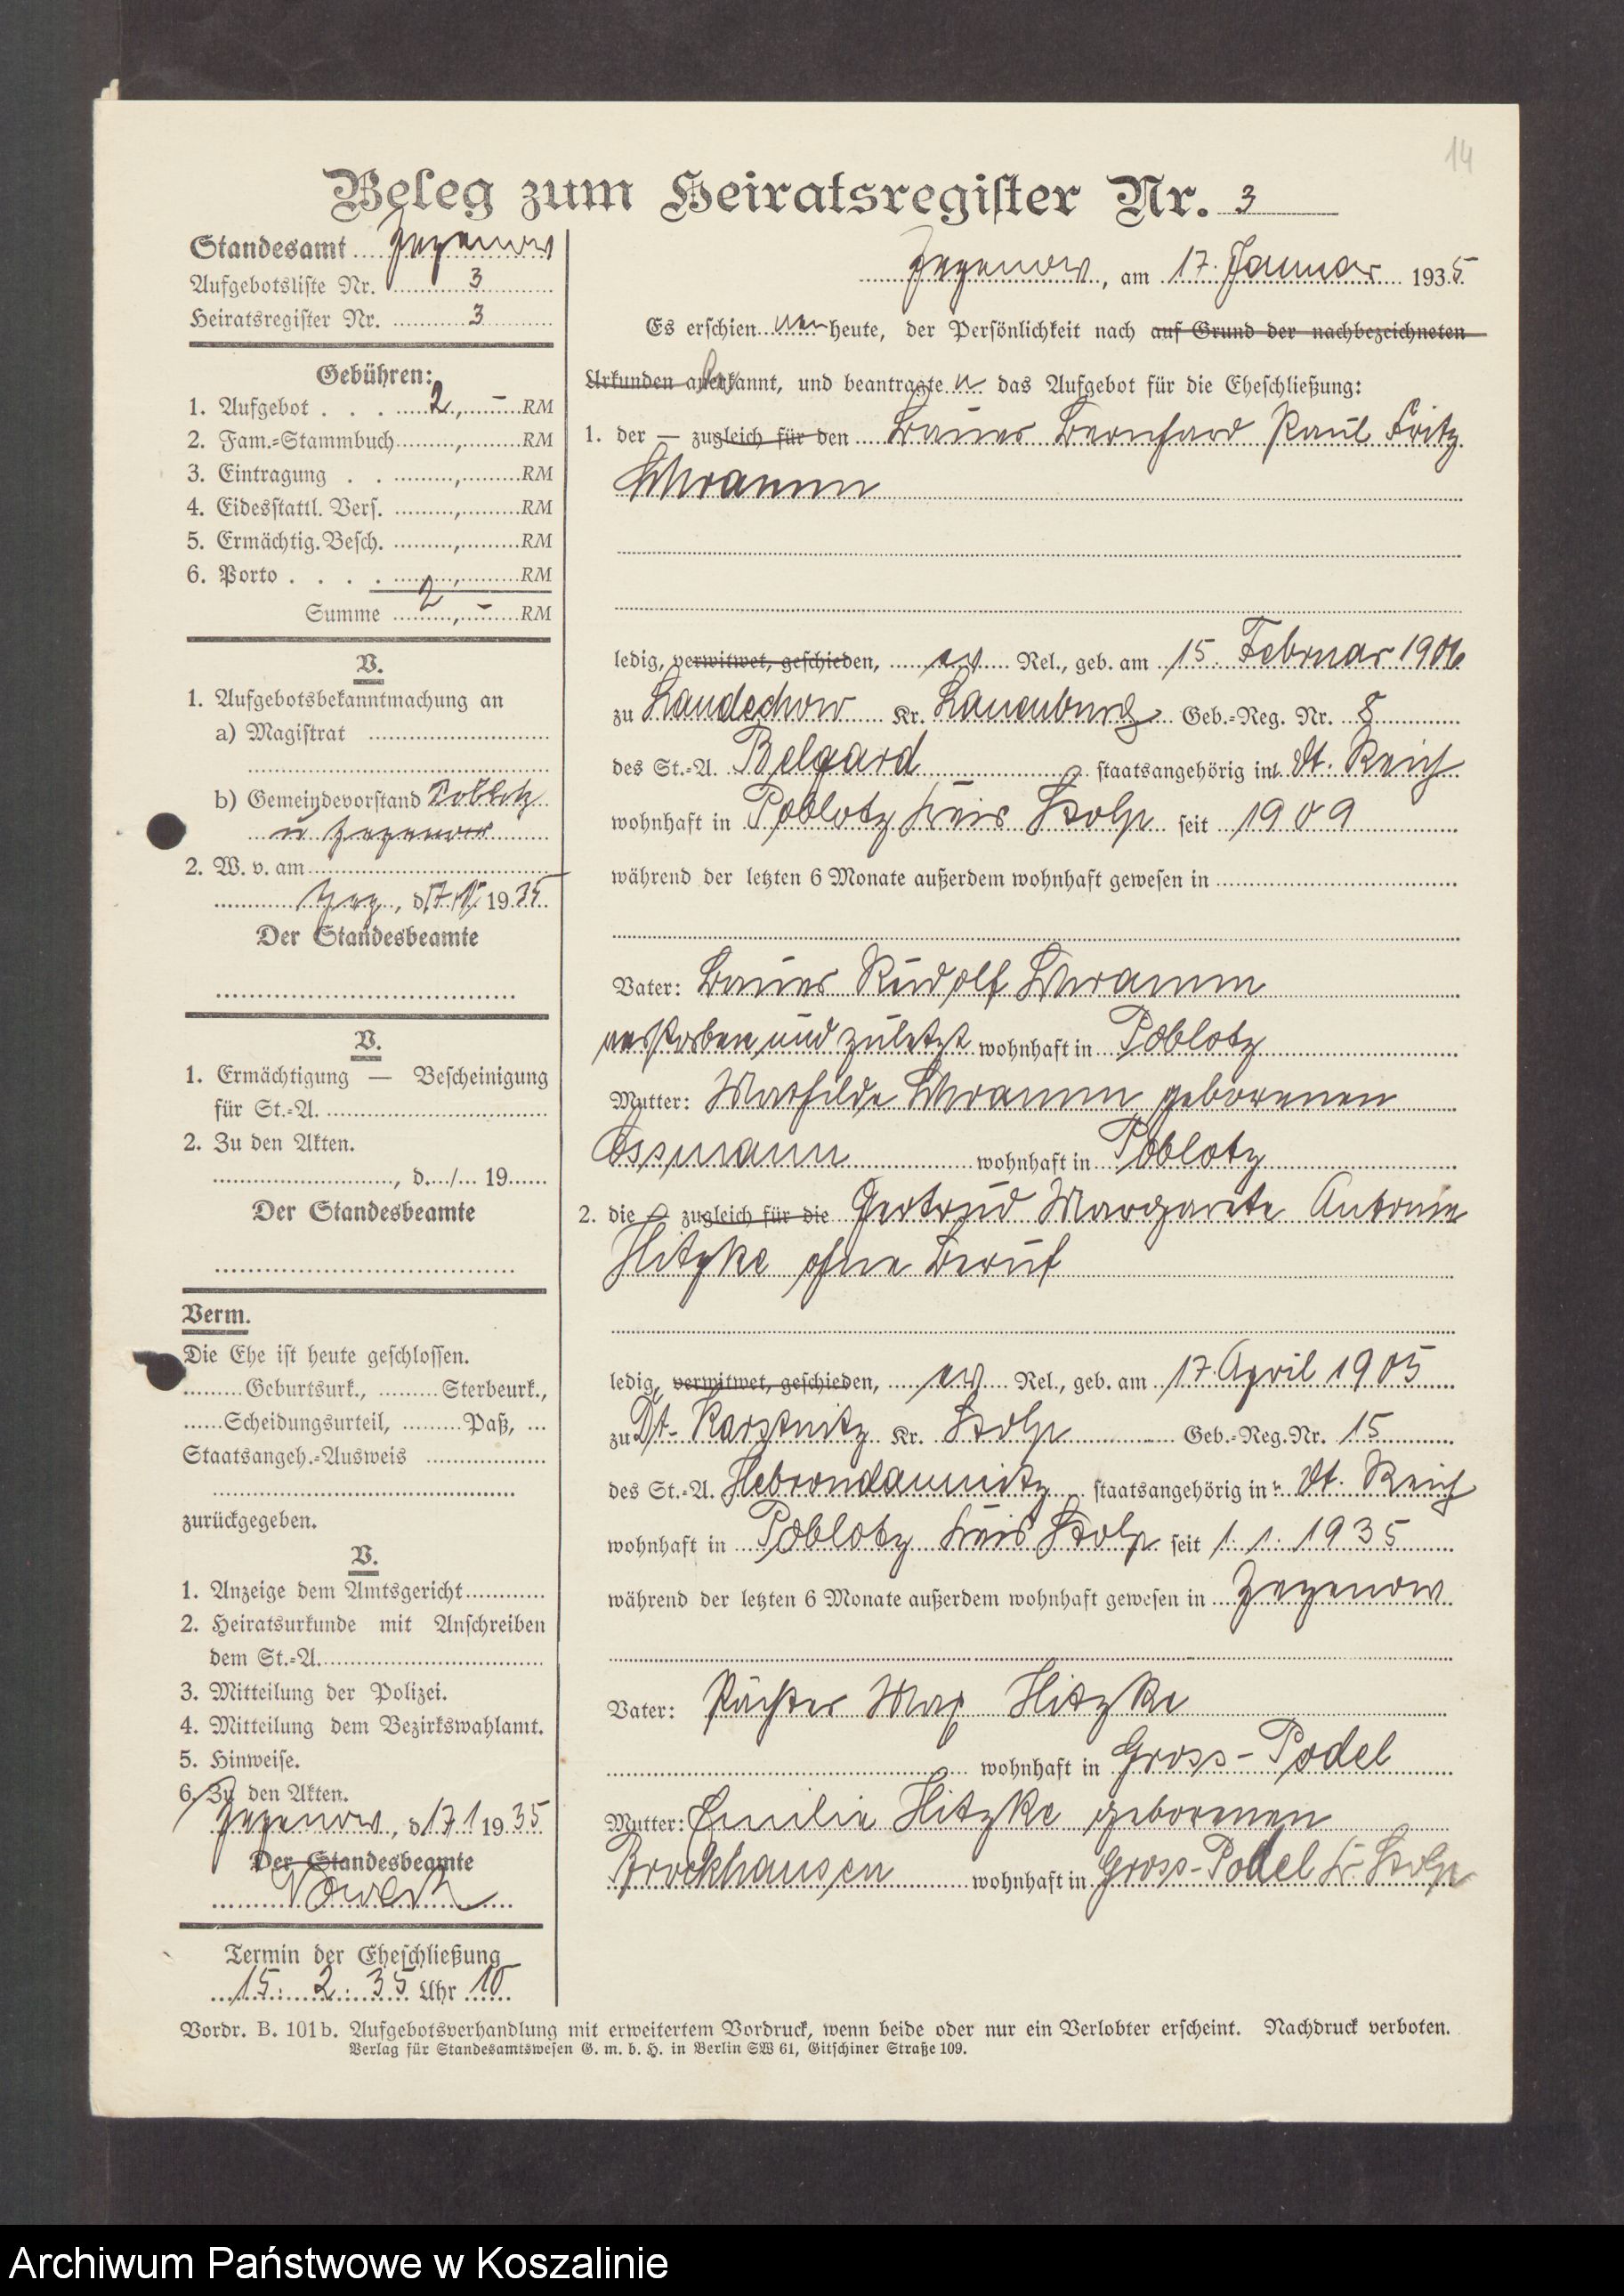 14
Beleg zum Heiratsregister Nr. 3
Standesamt Zezenow
Aufgebotsliste Nr. 3
Heiratsregister Nr. 3
Gebühren:
1. Aufgebot . . . 2,– RM
2. Fam.=Stammbuch , RM
3. Eintragung . . , RM
4. Eidesstattl. Vers. , RM
5. Ermächtig. Besch. , RM
6. Porto . . . . , RM
Summe 2,– RM
V.
1. Aufgebotsbekanntmachung an
a) Magistrat
b) Gemeindevorstand Poblotz
u Zezenow
2. W. v. am
Zez, d. 17/1 1935
Der Standesbeamte
V.
1. Ermächtigung — Bescheinigung
für St.=A.
2. Zu den Akten.
, d. / 19
Der Standesbeamte
Verm.
Die Ehe ist heute geschlossen.
Geburtsurk., Sterbeurk.,
Scheidungsurteil, Paß,
Staatsangeh.=Ausweis
zurückgegeben.
V.
1. Anzeige dem Amtsgericht
2. Heiratsurkunde mit Anschreiben
dem St.=A.
3. Mitteilung der Polizei.
4. Mitteilung dem Bezirkswahlamt.
5. Hinweise.
6. Zu den Akten.
Zezenow, d 17 1 1935
Der Standesbeamte
Termin der Eheschließung
15. 2. 35 Uhr 10
Zezenow, am 17. Januar 1935
Es erschien heute, der Persönlichkeit nach auf Grund der nachbezeichneten
Urkunden kannt, und beantragte n das Aufgebot für die Eheschließung:
1. der — zugleich für den Bauer Bernhard Paul Fritz
Schramm
ledig, verwitwet, geschieden, ev Rel., geb. am 15. Februar 1906
zu Landechow Kr. Lauenburg Geb.=Reg. Nr. 8
des St.=A. Belgard staatsangehörig in Dt. Reich
wohnhaft in Poblotz Kreis Stolp seit 1909
während der letzten 6 Monate außerdem wohnhaft gewesen in
Vater: Bauer Rudolf Schramm
verstorben und zuletzt wohnhaft in Poblotz
Mutter: Mathilde Schramm geborenen
Ossmann wohnhaft in Poblotz
2. die — zugleich für die Gertrud Margarete Antonie
Hitzke ohne Beruf
ledig, verwitwet, geschieden, ev Rel., geb. am 17. April 1905
zu Dt- Karstnitz Kr. Stolp Geb.=Reg. Nr. 15
des St.=A. Hebrondamnitz staatsangehörig in Dt. Reich
wohnhaft in Poblotz Kreis Stolp seit 1. 1. 1935
während der letzten 6 Monate außerdem wohnhaft gewesen in Zezenow
Vater: Pächter Max Hitzke
wohnhaft in Gross-Podel
Mutter: Emilie Hitzke geborenen
Brockhausen wohnhaft in Gross-Podel Kr. Stolp
Vordr. B. 101b. Aufgebotsverhandlung mit erweitertem Vordruck, wenn beide oder nur ein Verlobter erscheint. Nachdruck verboten.
Verlag für Standesamtswesen G. m. b. H. in Berlin SW 61, Gitschiner Straße 109.
Archiwum Państwowe w Koszalinie